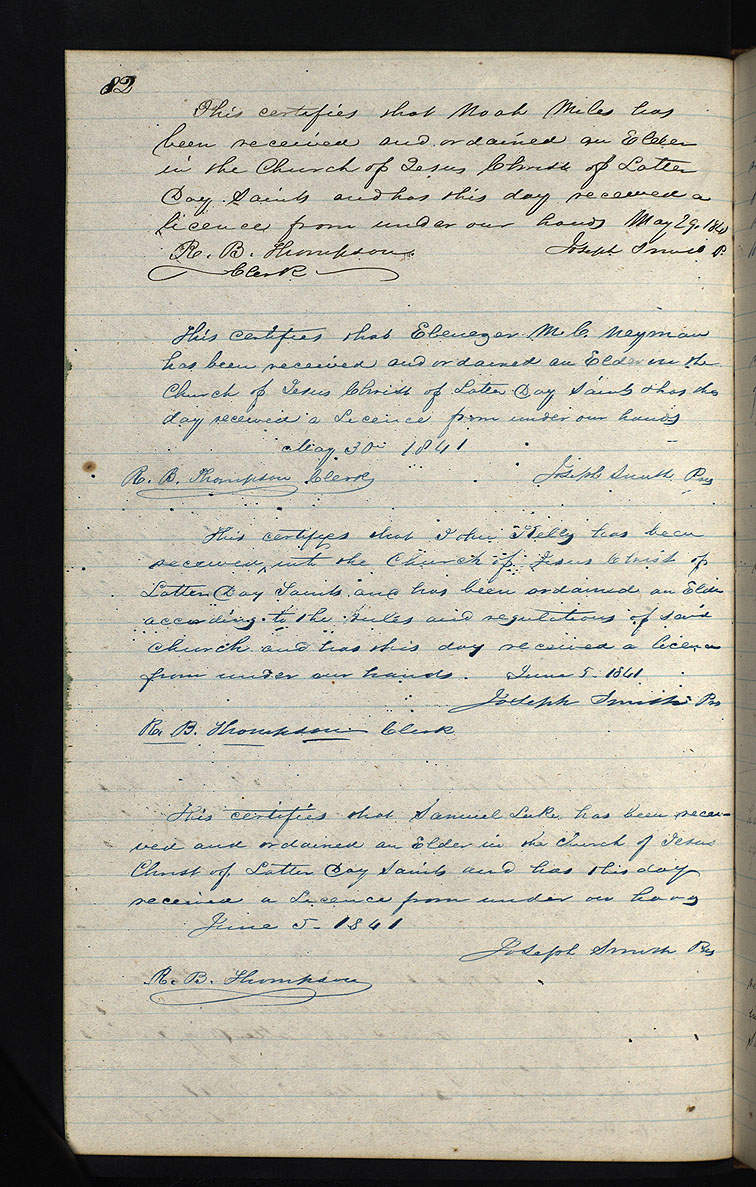 82
This certifies that Noah Miles has
been received and ordained an Elder
in the Church of Jesus Christ of Latter
Day Saints and has this day received a
licence from under our hands May 29. 184
R. B. Thompson. Joseph Smith P.
Clerk
This certifies that Ebenezer Mc. C. Neyman
has been received and ordained an Elder in the
Church of Jesus Christ of Latter Day Saints & has this
day received a Licence from under our hands
May 30th 1841
R. B. Thompson Clerk Joseph Smith Pres
This certifies that John Kelly has been
received into the Church of Jesus Christ of
Latter Day Saints and has been ordained an Elder
according to the rules and regulations of said
church and has this day received a licence
from under our hands. June 5. 1841
Joseph Smith Prs
R. B. Thompson Clerk
This certifies that Samuel Luke has been recei-
ved and ordained an Elder in the Church of Jesus
Christ of Latter Day Saints and has this day
received a Licence from under our hands
June 5- 1841
Joseph Smith Pres
R. B. Thompson